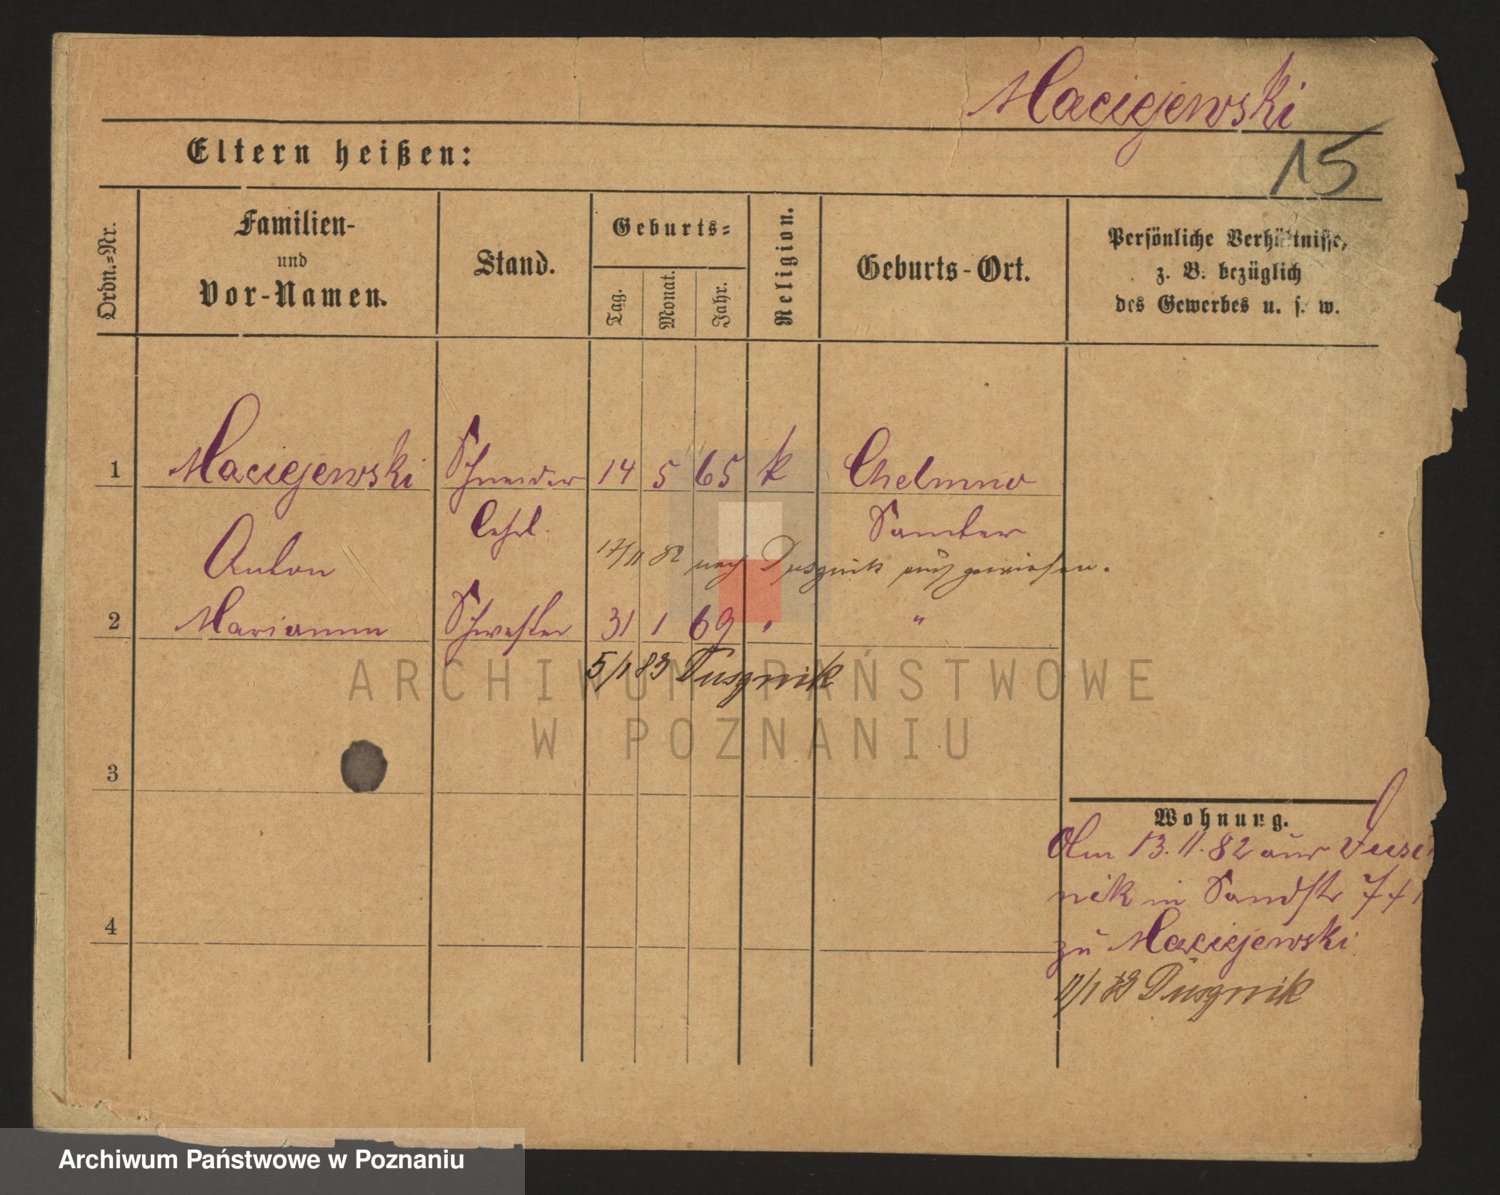 Maciejewski
15
Eltern heißen:
Ordn.=Nr.
Familien-
und
Vor-Namen.
Stand.
Geburts=
Tag.
Monat.
Jahr.
Religion.
Geburts-Ort.
Persönliche Verhältnisse,
z. B. bezüglich
des Gewerbes u. s. w.
1 Maciejewski Schneider 14 5 65 k Chelmno
Lehrl. Samter
Anton
17/11 82 nach Dusznik ausgewiesen.
2 Marianna Schwester 31 1 69 " "
5/1 83 Dusznik
ARCHIWUM PAŃSTWOWE
W POZNANIU
3
Wohnung.
Am 13.11.82 aus
nik in Sandstr
4
zu Maciejewski
Dusznik
Archiwum Państwowe w Poznaniu